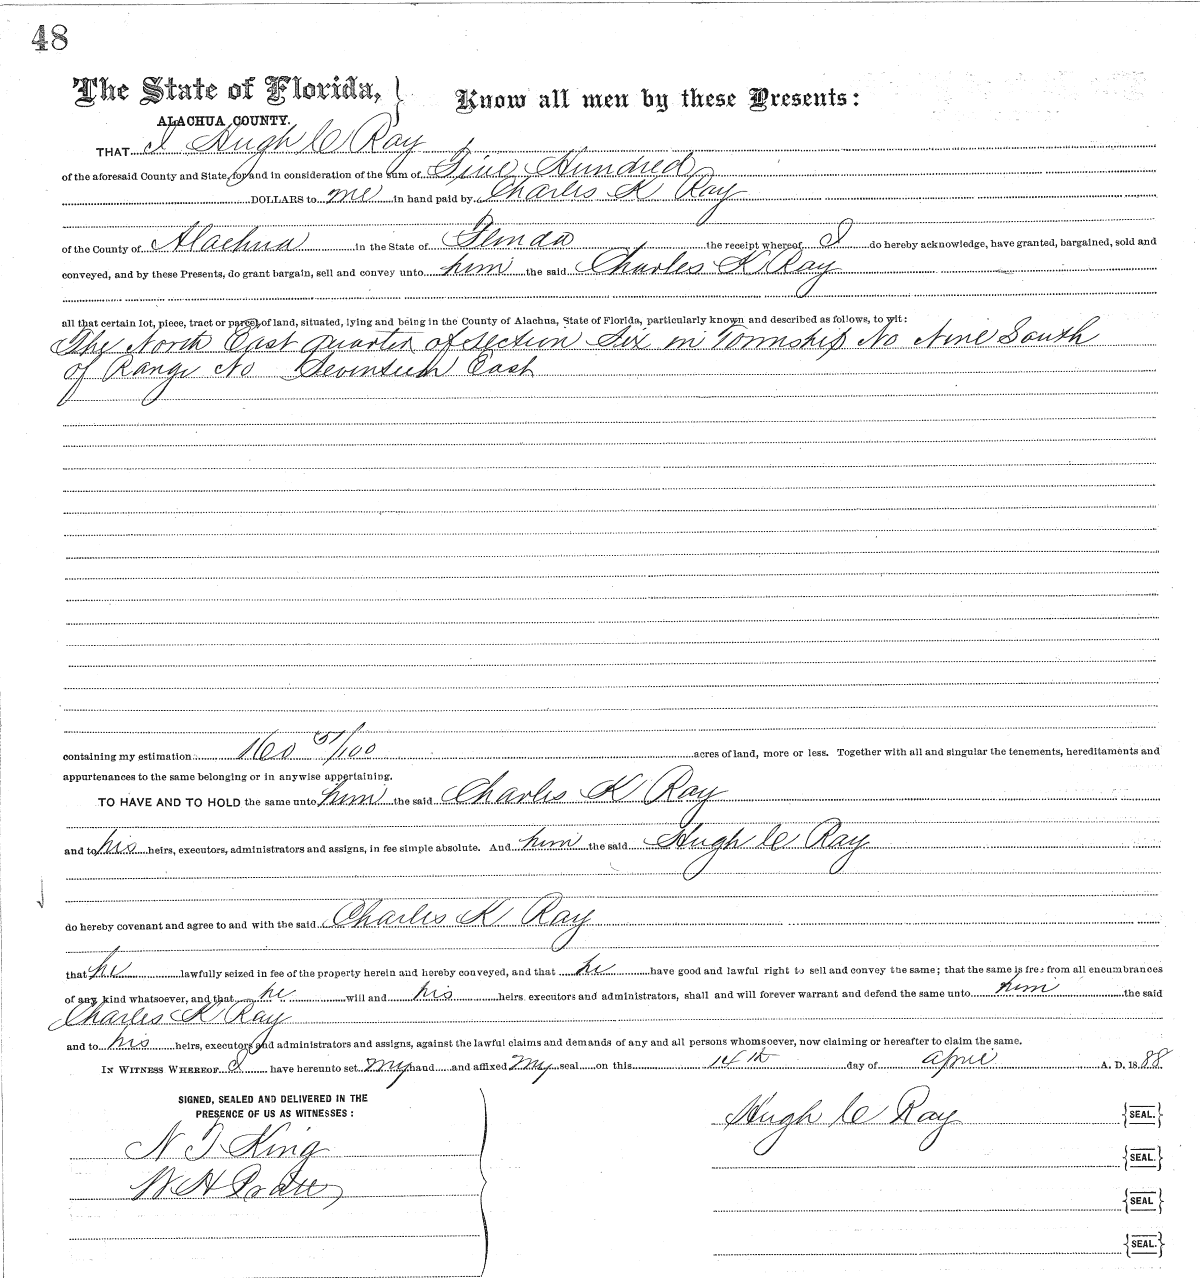 48
The State of Florida, } Know all men by these Presents:
ALACHUA COUNTY.
THAT I Hugh C Ray
of the aforesaid County and State, for and in consideration of the sum of Five Hundred
DOLLARS to me in hand paid by Charles K Ray
of the County of Alachua in the State of Florida the receipt whereof I do hereby acknowledge, have granted, bargained, sold and
conveyed, and by these Presents, do grant bargain, sell and convey unto him the said Charles K Ray
all that certain lot, piece, tract or parcel of land, situated, lying and being in the County of Alachua, State of Florida, particularly known and described as follows, to wit:
The North East quarter of section Six in Township No Nine South
of Range No Seventeen East
containing my estimation 160 51/100 acres of land, more or less. Together with all and singular the tenements, hereditaments and
appurtenances to the same belonging or in anywise appertaining.
TO HAVE AND TO HOLD the same unto him the said Charles K Ray
and to his heirs, executors, administrators and assigns, in fee simple absolute. And him the said Hugh C Ray
do hereby covenant and agree to and with the said Charles K Ray
that he lawfully seized in fee of the property herein and hereby conveyed, and that he have good and lawful right to sell and convey the same; that the same is free from all encumbrances
of any kind whatsoever, and that he will and his heirs executors and administrators, shall and will forever warrant and defend the same unto him the said
Charles K Ray
and to his heirs, executors and administrators and assigns, against the lawful claims and demands of any and all persons whomsoever, now claiming or hereafter to claim the same.
IN WITNESS WHEREOF I have hereunto set my hand and affixed my seal on this 14th day of April A. D. 1888
SIGNED, SEALED AND DELIVERED IN THE
PRESENCE OF US AS WITNESSES:
Hugh C Ray {SEAL.}
N T King
{SEAL.}
W H
{SEAL}
{SEAL.}